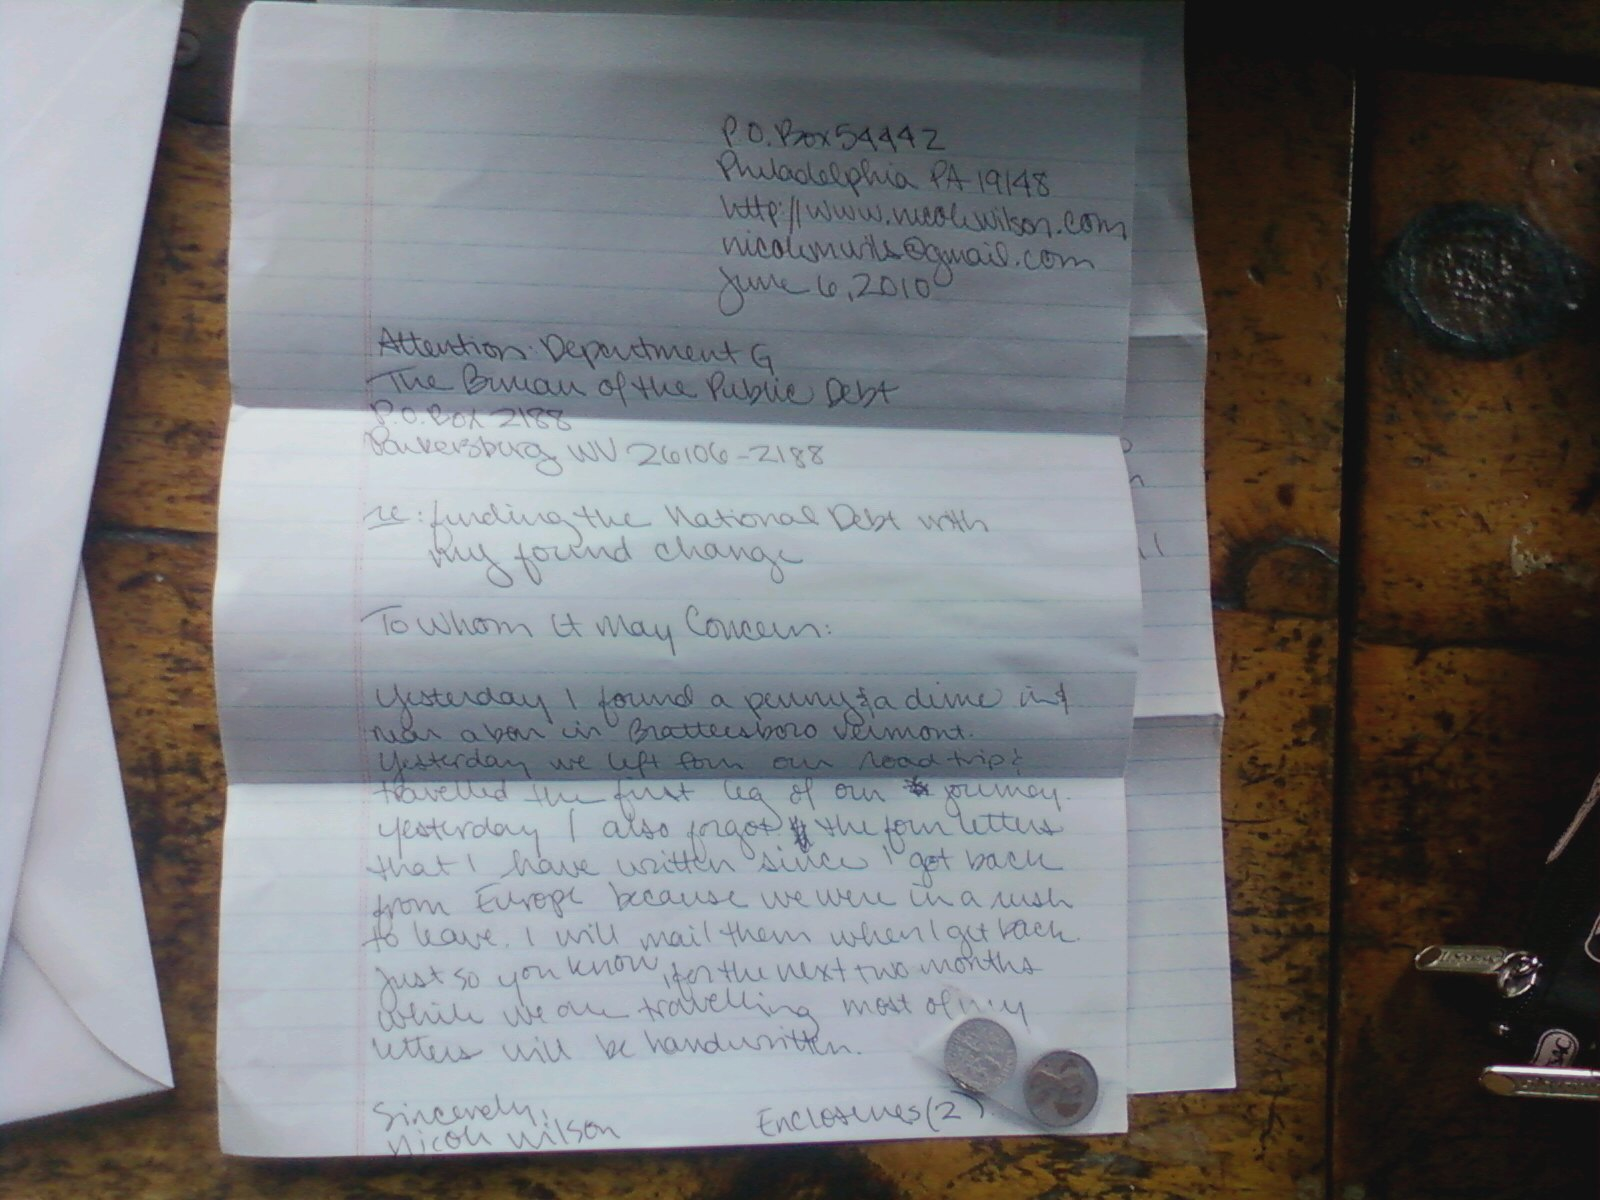 P.O. Box 54442
Philadelphia PA 19148
http://www.nicolewilson.com
nicolemwils@gmail.com
June 6, 2010
Attention: Department G
The Bureau of the Public Debt
P.O. Box 2188
Parkersburg WV 26106-2188
re: funding the National Debt with
my found change
To Whom It May Concern:
Yesterday I found a penny & a dime in &
near a bar in Brattlesboro Vermont.
Yesterday we left for our road trip &
travelled the first leg of our journey.
Yesterday I also forgot the four letters
that I have written since I got back
from Europe because we were in a rush
to leave. I will mail them when I get back.
Just so you know, for the next two months
while we are travelling most of my
letters will be handwritten.
Sincerely,
Nicole Wilson
Enclosures (2)